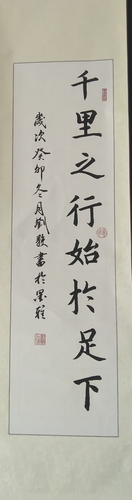 千里之行始於足下
歲次癸卯冬月劉
書於墨